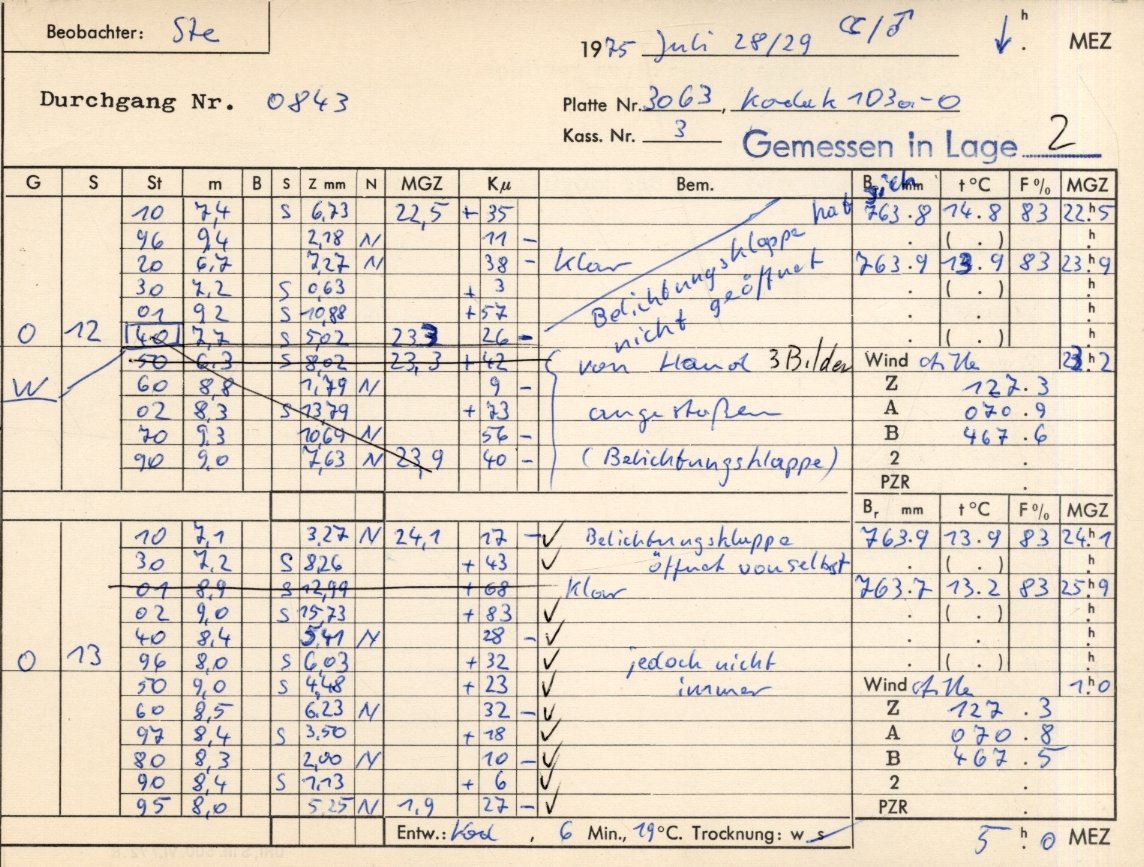 Beobachter: Ste
1975 Juli 28/29 ☾/♂ ↓ h . MEZ
Durchgang Nr. 0843
Platte Nr. 3063, Kodak 103a-0
Kass. Nr. 3
Gemessen in Lage 2
G S St m B S Z mm N MGZ Kμ Bem. Br mm t °C F % MGZ
10 7,4 S 6,73 22,5 + 35 763.8 14.8 83 22h5
96 9,4 2,18 N 11 - . ( . ) h
20 6,7 7,27 N 38 - Klar 763.9 13.9 83 23h9
30 7,2 S 0,63 + 3 . ( . ) h
01 9,2 S 10,88 + 57 . . h
Belichtungsklappe hat sich
nicht geöffnet
O 12 40 7,7 S 5,02 23,3 26 - . ( . ) h
50 6,3 S 8,02 23,3 + 42 von Hand 3 Bilder Wind stille 23h2
W 60 8,8 1,79 N 9 - Z 127.3
02 8,3 S 13,79 + 73 angestoßen A 070.9
70 9,3 10,69 N 56 - B 467.6
90 9,0 7,63 N 23,9 40 - (Belichtungsklappe) 2 .
PZR .
Br mm t °C F % MGZ
10 7,1 3,27 N 24,1 17 - ✓ Belichtungsklappe 763.9 13.9 83 24h1
30 7,2 S 8,26 + 43 ✓ öffnet von selbst . ( . ) h
01 8,9 S 12,99 + 68 Klar 763.7 13.2 83 25h9
02 9,0 S 15,73 + 83 ✓ . ( . ) h
40 8,4 5,41 N 28 - ✓ . . h
O 13 96 8,0 S 6,03 + 32 ✓ jedoch nicht . ( . ) h
50 9,0 S 4,48 + 23 ✓ immer Wind stille 1h0
60 8,5 6,23 N 32 - ✓ Z 127.3
97 8,4 S 3,50 + 18 ✓ A 070.8
80 8,3 2,00 N 10 - ✓ B 467.5
90 8,4 S 1,13 + 6 ✓ 2 .
95 8,0 5,25 N 1,9 27 - ✓ PZR .
Entw.: Kod , 6 Min., 19°C. Trocknung: w s 5 h 0 MEZ